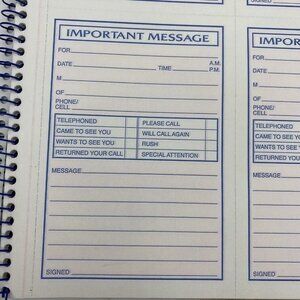 SIGNED
IMPORTANT MESSAGE
FOR
DATE TIME A.M.
P.M.
M
OF
PHONE/
CELL
TELEPHONED PLEASE CALL
CAME TO SEE YOU WILL CALL AGAIN
WANTS TO SEE YOU RUSH
RETURNED YOUR CALL SPECIAL ATTENTION
MESSAGE
SIGNED
SIGNED
IMPORTANT
FOR
DATE
M
OF
PHONE/
CELL
TELEPHONED
CAME TO SEE YOU
WANTS TO SEE YOU
RETURNED YOUR
MESSAGE
SIGNED